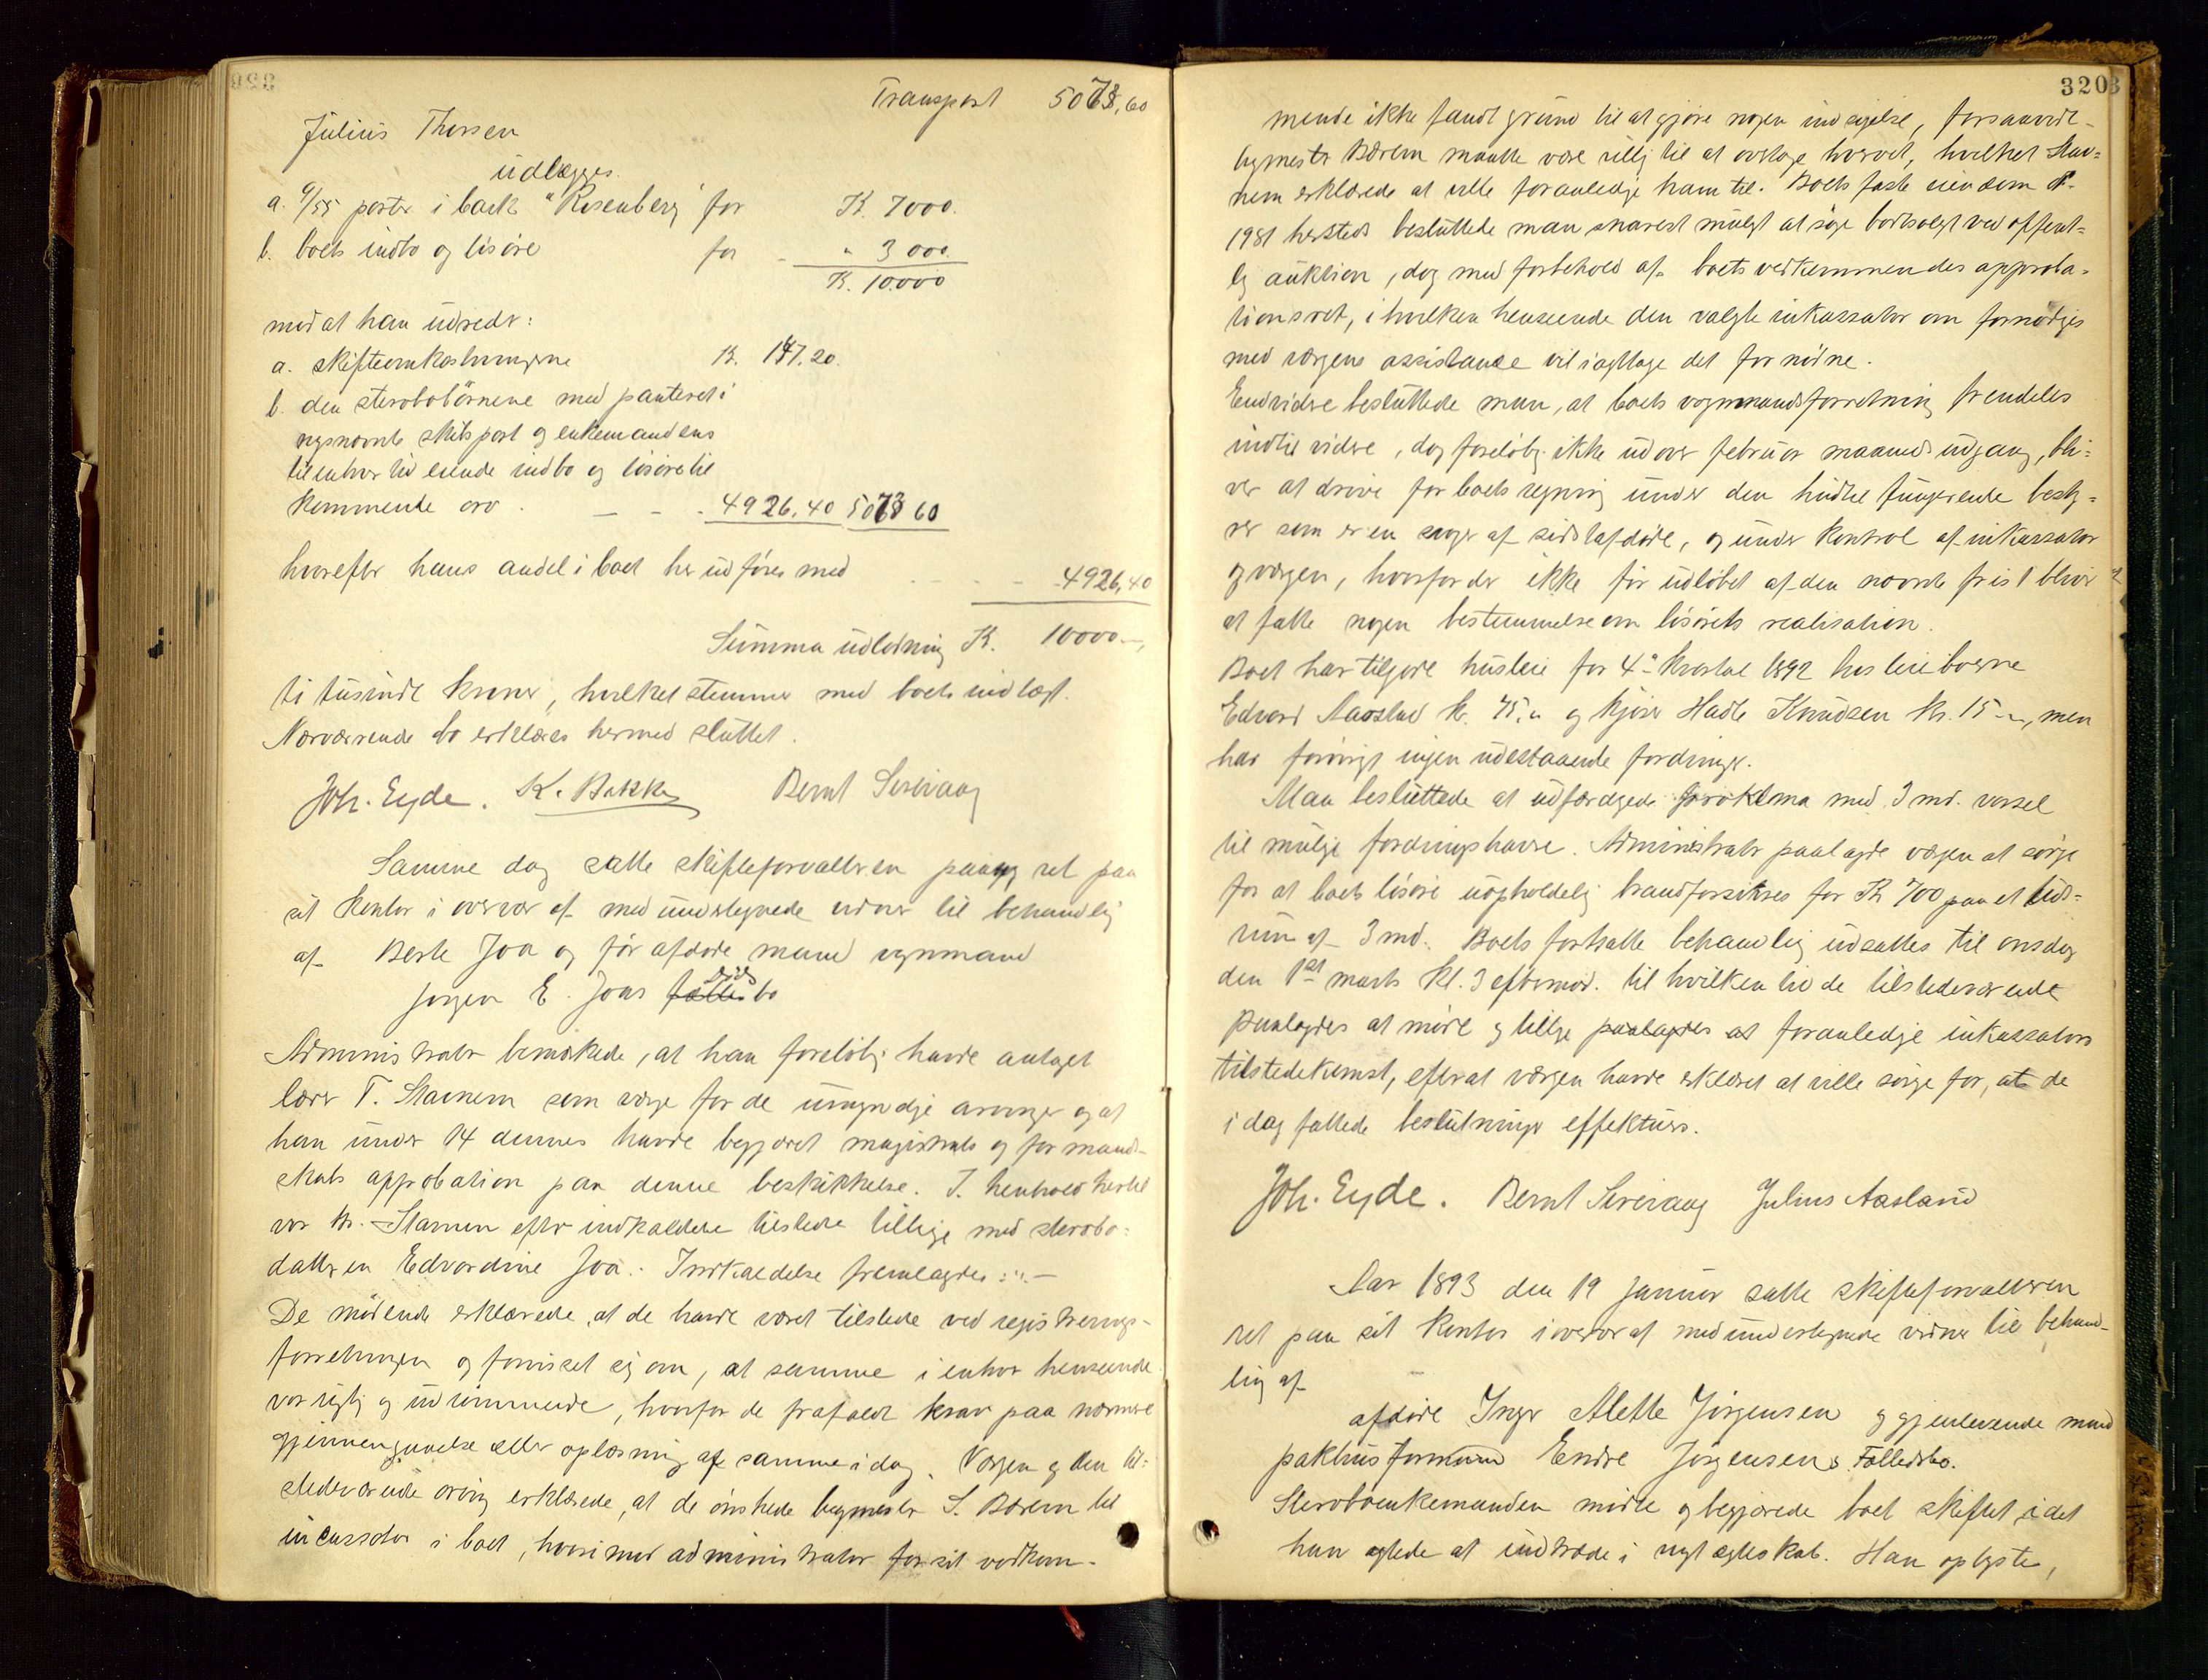 Transport 5073,60
Julius Thorsen
udlægges
a. 9/55 parter i bark "Rosenberg" for K. 7000.
b. boets indbo og løsøre for - " 3000.
K. 10000
mod at han udreder:
a. skifteomkostningerne K. 147.20.
b. den sterbobørnene med panteret i
nysnævnte skibspart og enkemandens
til enhver tid eiende indbo og løsøre til
kommende arv - - - 4926.40 5073 60
hvorefter hans andel i boet her udføres med - - 4926,40
Summa udlodning K. 10000 -,
ti tusinde kroner, hvilket stemmer med boets indtægt.
Nærværende bo erklæres hermed sluttet.
Joh. Eyde. K. Bakke Bernt Sereivaag
Samme dag satte skifteforvalteren paany ret paa
sit kontor i overvær af medundertegnede vidner til behandling
af Berte Joa og før afdøde mand vognmand
Jørgen E. Joas fælles bo
Administrator bemærkede, at han foreløbig havde antaget
lærer T. Stavnem som værge for de umyndige arvinger og at
han under 14 dennes havde begjæret magistrats og formand-
skabs approbation paa denne beskikkelse. I henhold hertil
var hr. Stavnem efter indkaldelse tilstede tillige med sterbo-
datteren Edvardine Joa. Indkaldelse fremlagdes :,,: -
De mødende erklærede, at de havde været tilstede ved registrerings-
forretningen og forvisset sig om, at samme i enhver henseende
var rigtig og udtømmende, hvorfor de frafaldt krav paa nærmere
gjennemgaaelse eller oplæsning af samme i dag. Værgen og den til-
stedeværende arving erklærede, at de ønskede bygmester S. Bærem til
incassator i boet, hvorimod administrator for sit vedkom-
320
mende ikke fandt grund til at gjøre nogen indsigelse, forsaavidt
bygmester Bærem maatte være villig til at overtage hvervet, hvilket Stav-
nem erklærede at ville foranledige ham til. Boets faste eiendom №
1981 hersteds besluttede man snarest muligt at søge bortsolgt ved offent-
lig auktion, dog med forbehold af boets vedkommendes approba-
tionsret, i hvilken henseende den valgte inkassator om fornødiges
med værgens assistance vil iagttage det fornødne.
Endvidere besluttede man, at boets vognmandsforretning fremdeles
indtil videre, dog foreløbig ikke udover februar maaneds udgang, bli-
ver at drive for boets regning under den hidtil fungerende besty-
rer som er en svoger af sidstafdøde, og under kontrol af inkassator
og værgen, hvorfor der ikke før udløbet af den nævnte frist bliver
at fatte nogen bestemmelse om løsørets realisation.
Boet har tilgode husleie for 4de kvartal 1892 hos leieboerne
Edvard Aarstad kr. 45.- og Kjøser Hadle Knudsen kr. 15 -, men
har forøvrigt ingen udestaaende fordringer.
Man besluttede at udfærdige proklama med 3 md. varsel
til mulige fordringshavere. Administrator paalagde værgen at sørge
for at boets løsøre uopholdelig brandforsikres for K 700 paa et tids-
rum af 3 md. Boets fortsatte behandling udsattes til onsdag
den 1st marts kl. 3 eftermid. til hvilken tid de tilstedeværende
paalagdes at møde og tillige paalagdes at foranledige inkassators
tilstedekomst, efterat værgen havde erklæret at ville sørge for, at de
i dag fattede beslutninger effektueres.
Joh. Eyde. Bernt Sereivaag Julius Aasland
Aar 1893 den 19 januar satte skifteforvalteren
ret paa sit kontor i overvær af medundertegnede vidner til behand-
ling af
afdøde Inger Mette Jørgensen og gjenlevende mand
pakhusformand Endre Jørgensens Fællesbo.
Sterboenkemanden mødte og begjærede boet skiftet, idet
han agtede at indtræde i nyt ægteskab. Han oplyste,